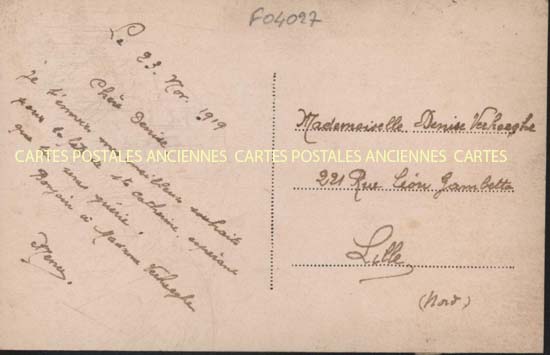 F04027
Le 23. Nov. 1919
Chère Denise
je t'envoie mes meilleurs souhaits
pour la Ste Catherine, espérant
que tu seras guérie.
Bonjour à Madame Verhaeghe
Mademoiselle Denise Verhaeghe
221 Rue Léon Gambetta
Lille
(Nord)
CARTES POSTALES ANCIENNES CARTES POSTALES ANCIENNES CARTES